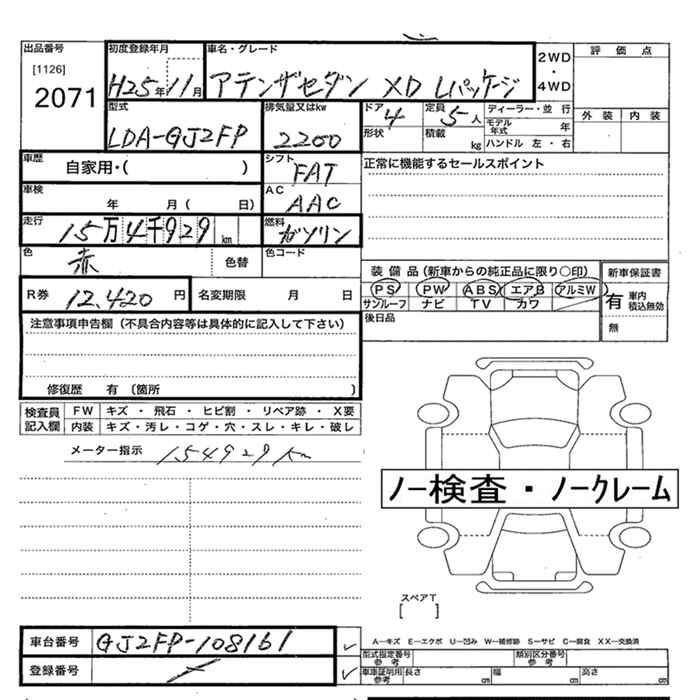 出品番号 初度登録年月 車名・グレード 2WD・4WD 評価点
[1126]
2071 H25年11月 アテンザセダン XD Lパッケージ
型式 排気量又はkw ドア 4 定員 5人 ディーラー・並行 外装 内装
LDA-GJ2FP 2200 形状 積載 kg モデル年式 年
ハンドル 左・右
車歴 自家用・( ) シフト FAT 正常に機能するセールスポイント
車検 年 月( 日) AC AAC
走行 15万4千929km 燃料 ガソリン
色 赤 色替 色コード
装備品(新車からの純正品に限り○印) 新車保証書
R券 12,420円 名変期限 月 日 PS PW ABS エアB アルミW 有 車内積込無効
サンルーフ ナビ TV カワ
注意事項申告欄(不具合内容等は具体的に記入して下さい) 後日品 無
修復歴 有(箇所 )
検査員記入欄 FW キズ・飛石・ヒビ割・リペア跡・X要
内装 キズ・汚レ・コゲ・穴・スレ・キレ・破レ
メーター指示 154929km
ノー検査・ノークレーム
スペアT
[ ]
車台番号 GJ2FP-108161 A―キズ E―エクボ U―凹み W―補修跡 S―サビ C―腐食 XX―交換済
型式指定番号 参考 類別区分番号 参考
登録番号 車庫証明用 参考 長さ cm 幅 cm 高さ cm